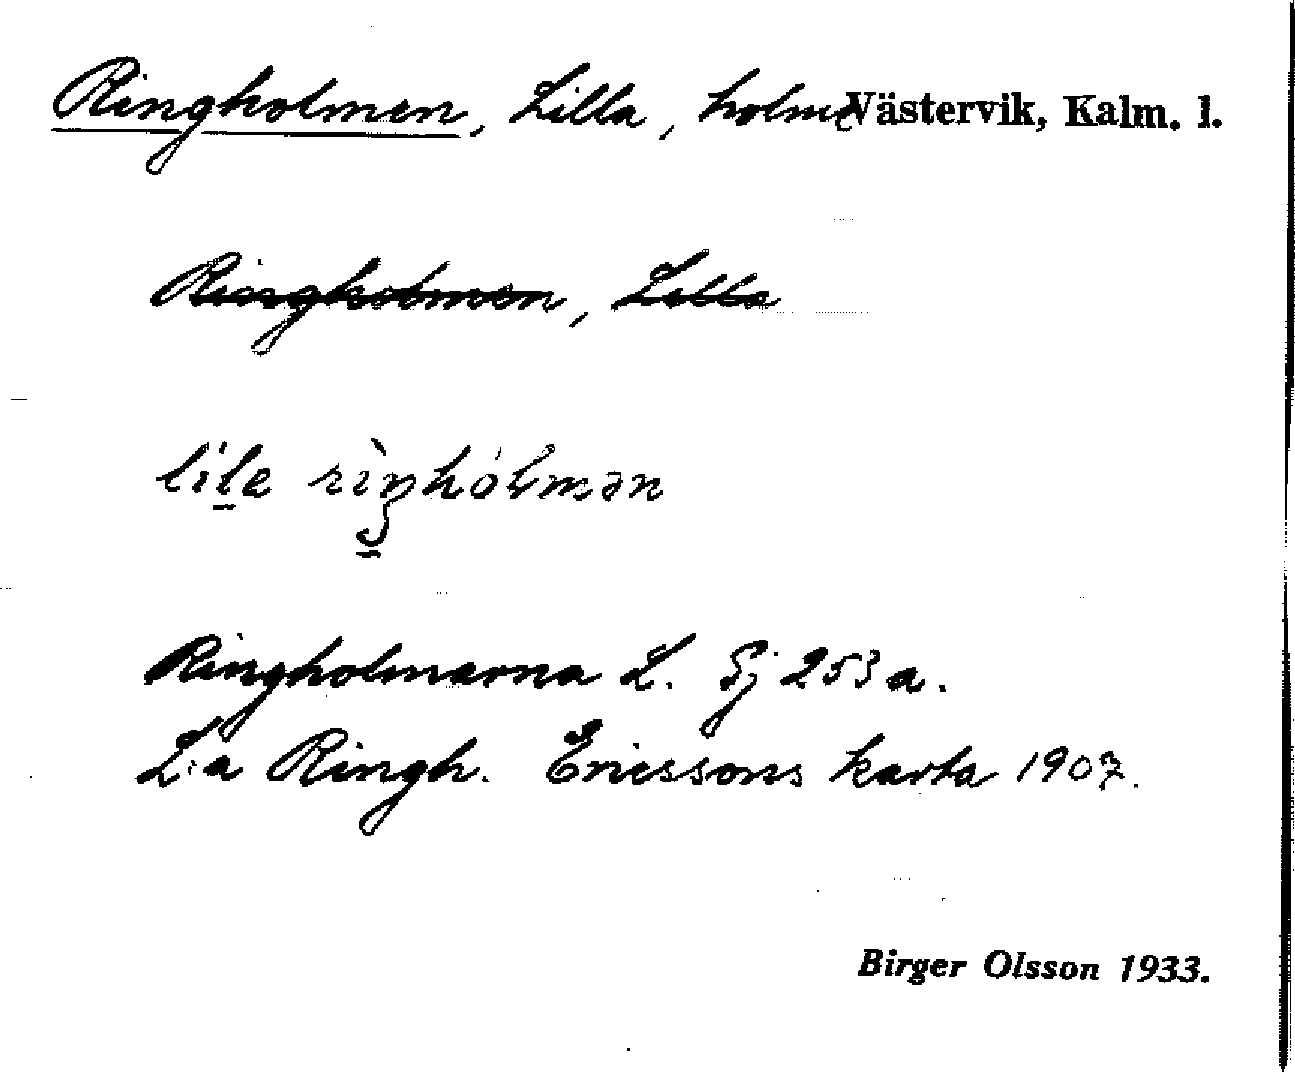 Ringholmen, Lilla, holme Västervik, Kalm. l.
Ringholmen, Lilla
lile rìŋhólmən
Ringholmarna L. Sj 253 a.
L:a Ringh. Ericssons karta 1907.
Birger Olsson 1933.